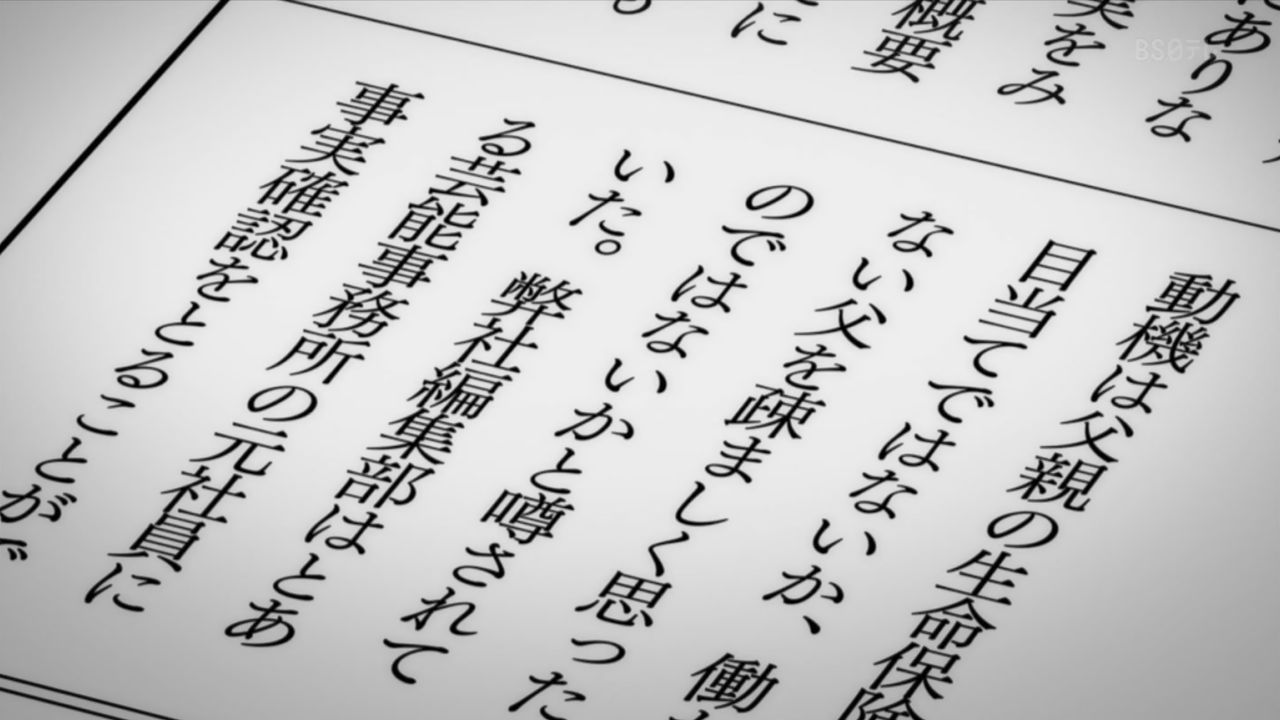 にありな
実をみ
概要
に
。
動機は父親の生命保険
目当てではないか、働
ない父を疎ましく思った
のではないかと噂されて
いた。弊社編集部はとあ
る芸能事務所の元社員に
事実確認をとることがで
BS日テレ